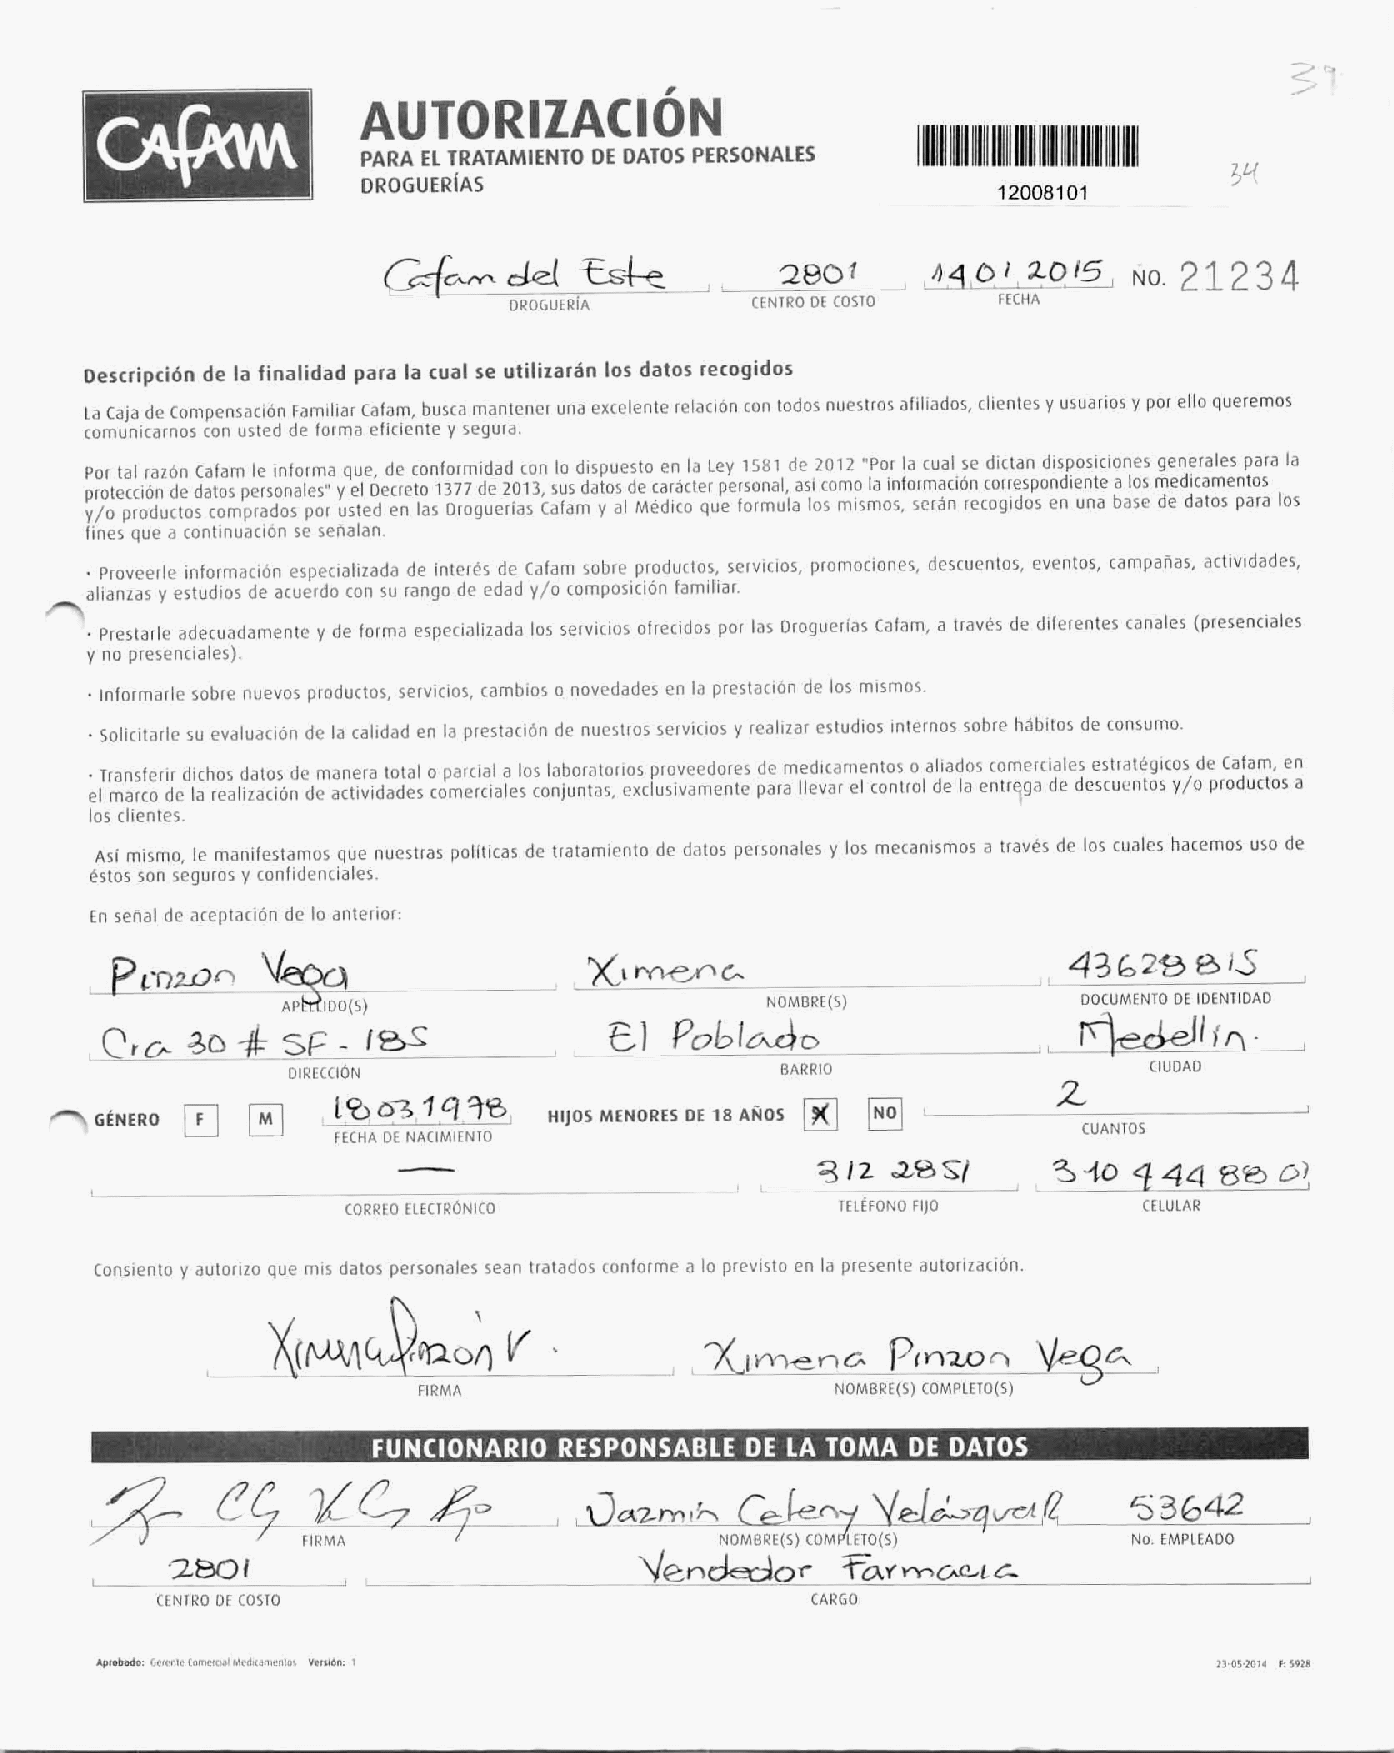 39
Cafam
AUTORIZACIÓN
PARA EL TRATAMIENTO DE DATOS PERSONALES
DROGUERÍAS
12008101
34
Cafam del Este 2801 14 01 2015 NO. 21234
DROGUERÍA CENTRO DE COSTO FECHA
Descripción de la finalidad para la cual se utilizarán los datos recogidos
La Caja de Compensación Familiar Cafam, busca mantener una excelente relación con todos nuestros afiliados, clientes y usuarios y por ello queremos
comunicarnos con usted de forma eficiente y segura.
Por tal razón Cafam le informa que, de conformidad con lo dispuesto en la Ley 1581 de 2012 "Por la cual se dictan disposiciones generales para la
protección de datos personales" y el Decreto 1377 de 2013, sus datos de carácter personal, asi como la información correspondiente a los medicamentos
y/o productos comprados por usted en las Droguerías Cafam y al Médico que formula los mismos, serán recogidos en una base de datos para los
fines que a continuación se señalan.
· Proveerle información especializada de interés de Cafam sobre productos, servicios, promociones, descuentos, eventos, campañas, actividades,
alianzas y estudios de acuerdo con su rango de edad y/o composición familiar.
· Prestarle adecuadamente y de forma especializada los servicios ofrecidos por las Droguerías Cafam, a través de diferentes canales (presenciales
y no presenciales).
· Informarle sobre nuevos productos, servicios, cambios o novedades en la prestación de los mismos.
· Solicitarle su evaluación de la calidad en la prestación de nuestros servicios y realizar estudios internos sobre hábitos de consumo.
· Transferir dichos datos de manera total o parcial a los laboratorios proveedores de medicamentos o aliados comerciales estratégicos de Cafam, en
el marco de la realización de actividades comerciales conjuntas, exclusivamente para llevar el control de la entrega de descuentos y/o productos a
los clientes.
Así mismo, le manifestamos que nuestras políticas de tratamiento de datos personales y los mecanismos a través de los cuales hacemos uso de
éstos son seguros y confidenciales.
En señal de aceptación de lo anterior:
Pinzon Vega Ximena 43628815
APELLIDO(S) NOMBRE(S) DOCUMENTO DE IDENTIDAD
Cra 30 # 5F - 185 El Poblado Medellin.
DIRECCIÓN BARRIO CIUDAD
GÉNERO F M 18 03 1978 HIJOS MENORES DE 18 AÑOS X NO 2
FECHA DE NACIMIENTO CUANTOS
— 312 2851 310 444 88 01
CORREO ELECTRÓNICO TELÉFONO FIJO CELULAR
Consiento y autorizo que mis datos personales sean tratados conforme a lo previsto en la presente autorización.
Ximena Pinzón V. Ximena Pinzon Vega
FIRMA NOMBRE(S) COMPLETO(S)
FUNCIONARIO RESPONSABLE DE LA TOMA DE DATOS
Jazmin Celeny Velásquez R 53642
FIRMA NOMBRE(S) COMPLETO(S) No. EMPLEADO
2801 Vendedor Farmacia
CENTRO DE COSTO CARGO
Aprobado: Gerente Comercial Medicamentos Versión: 1 23-05-2014 F: 5928